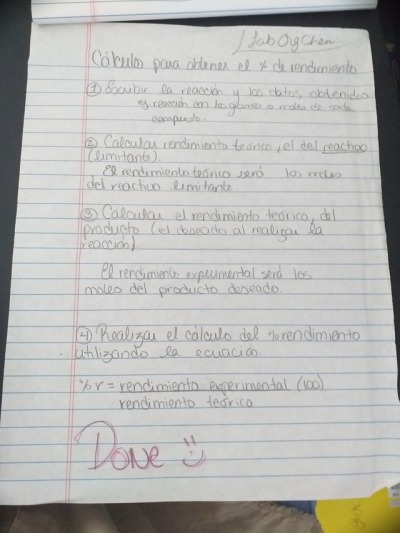 Lab OrgChem
Cálculos para obtener el % de rendimiento
① Escribir la reacción y los datos obtenidos
ej reacción con los gramos o moles de cada
compuesto.
② Calcular rendimiento teórico, el del reactivo
(limitante).
El rendimiento teórico será los moles
del reactivo limitante
③ Calcular el rendimiento teórico, del
producto (el deseado al realizar la
reacción).
El rendimiento experimental será los
moles del producto deseado.
④ Realizar el cálculo del % rendimiento
utilizando la ecuación.
% r = rendimiento experimental (100)
rendimiento teórico
DONE